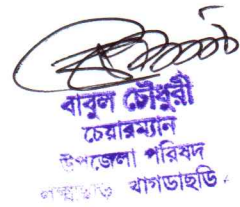 বাবুল চৌধুরী
চেয়ারম্যান
উপজেলা পরিষদ
খাগড়াছড়ি